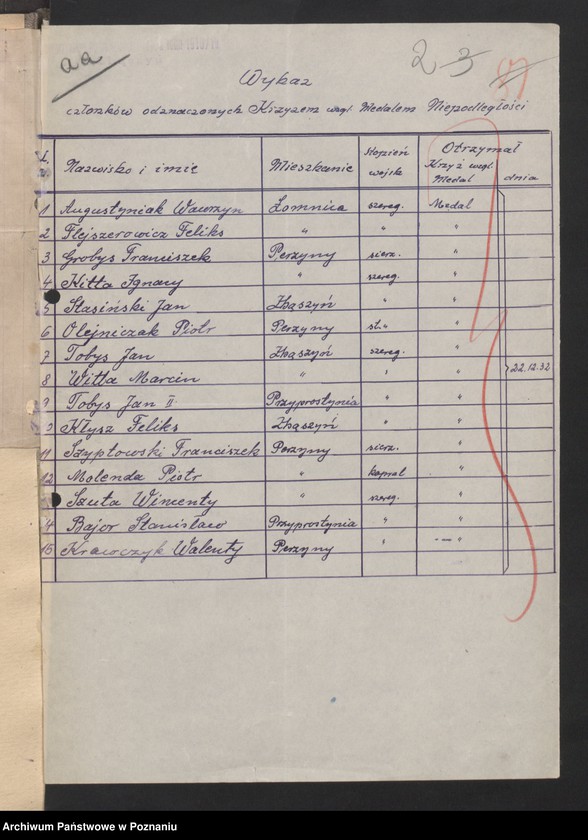 aa
2 3
57
Wykaz
członków odznaczonych Krzyżem wzgl. Medalem Niepodległości
L. Nazwisko i imię Mieszkanie Stopień wojsk Otrzymał Krzyż wzgl. Medal dnia
1 Augustyniak Wawrzyn Łomnica szereg. Medal
2 Flejszerowicz Feliks " " "
3 Grobys Franciszek Perzyny sierż. "
4 Kitta Ignacy " szereg. "
5 Stasiński Jan Zbąszyń " "
6 Olejniczak Piotr Perzyny st. " "
7 Tobys Jan Zbąszyń szereg. " 22.12.32
8 Witta Marcin " " "
9 Tobys Jan II Przyprostynia " "
Kłysz Feliks Zbąszyń " "
11 Szyptowski Franciszek Perzyny sierż. "
12 Molenda Piotr " kapral "
Szuta Wincenty " szereg. "
4 Bajor Stanisław Przyprostynia " "
15 Krawczyk Walenty Perzyny " — "
Archiwum Państwowe w Poznaniu